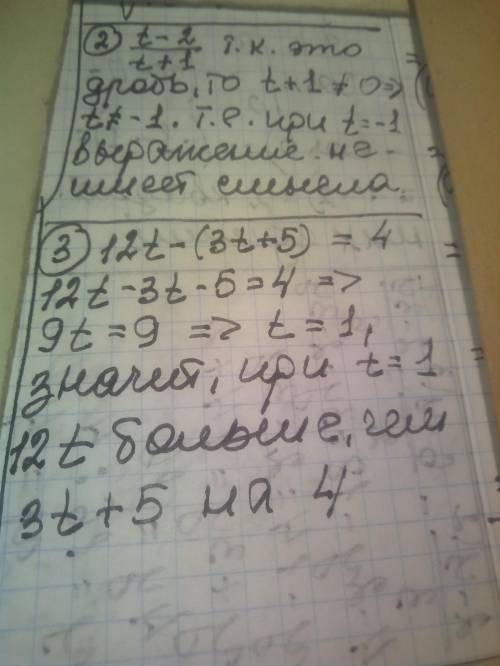 ② t-2/t+1 т.к. это
дробь, то t+1≠0=>
t≠-1. Т.е. при t=-1
выражение не
имеет смысла.
③ 12t-(3t+5) = 4
12t-3t-5=4 =>
9t=9 => t=1,
значит, при t=1
12t больше, чем
3t+5 на 4